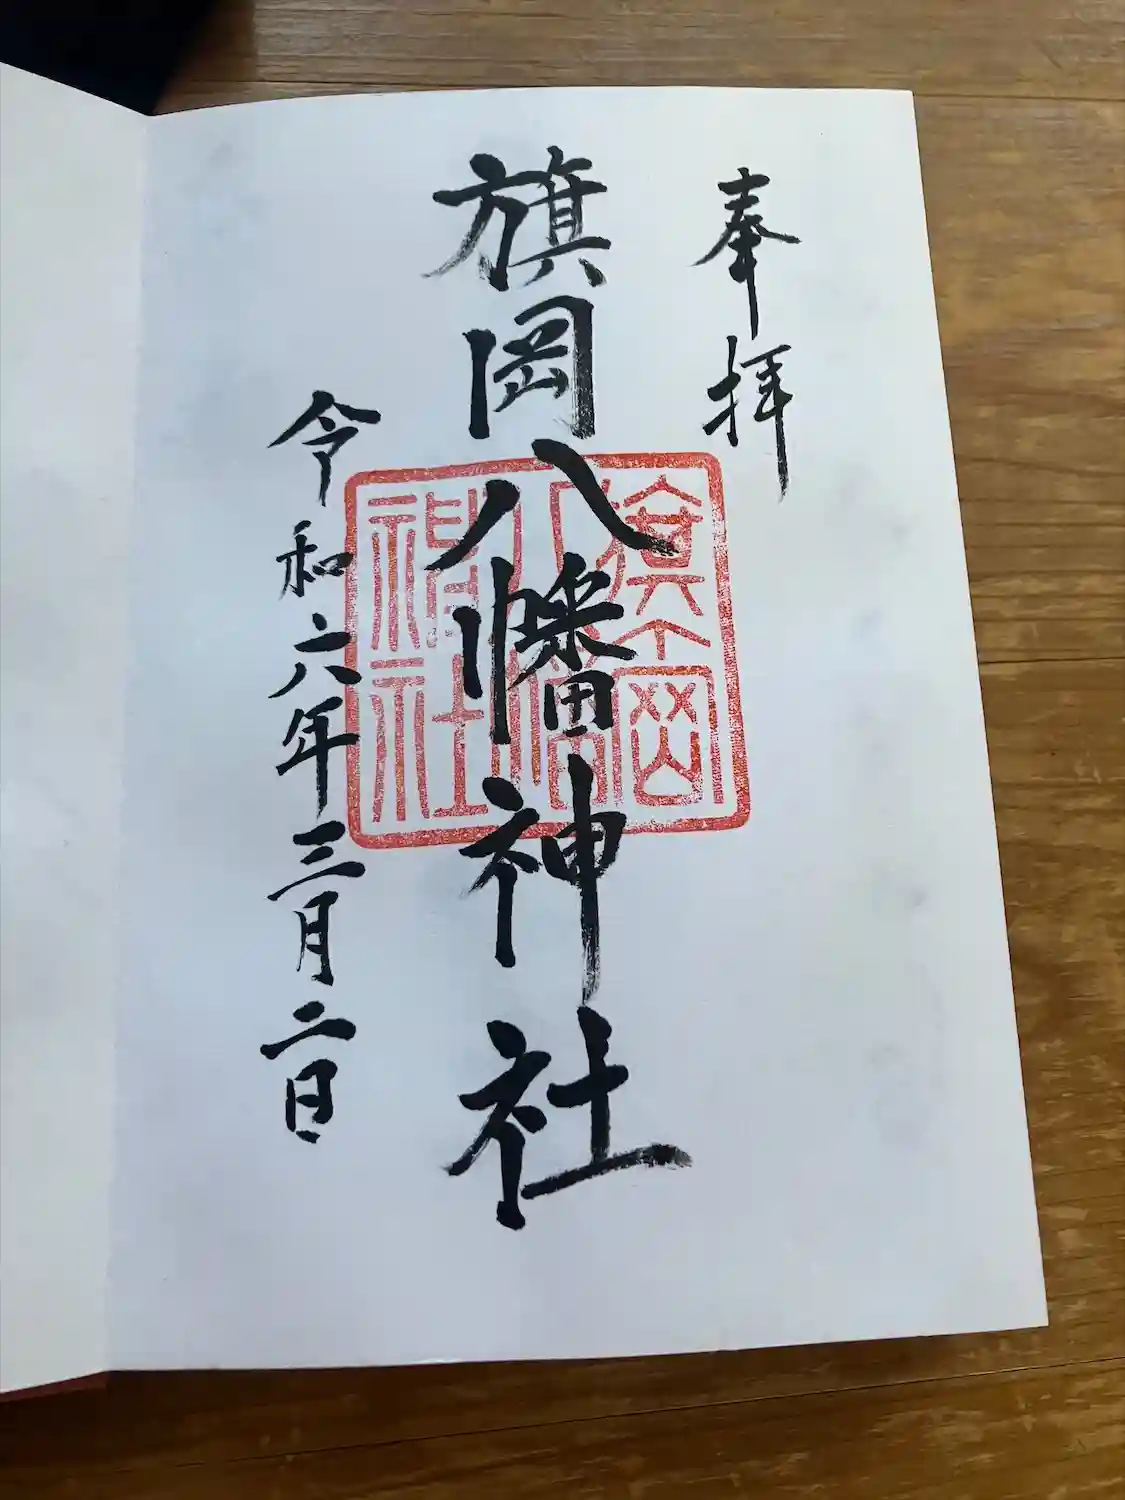 奉拝
旗岡八幡神社
旗岡
八幡
神社
令和六年三月二日